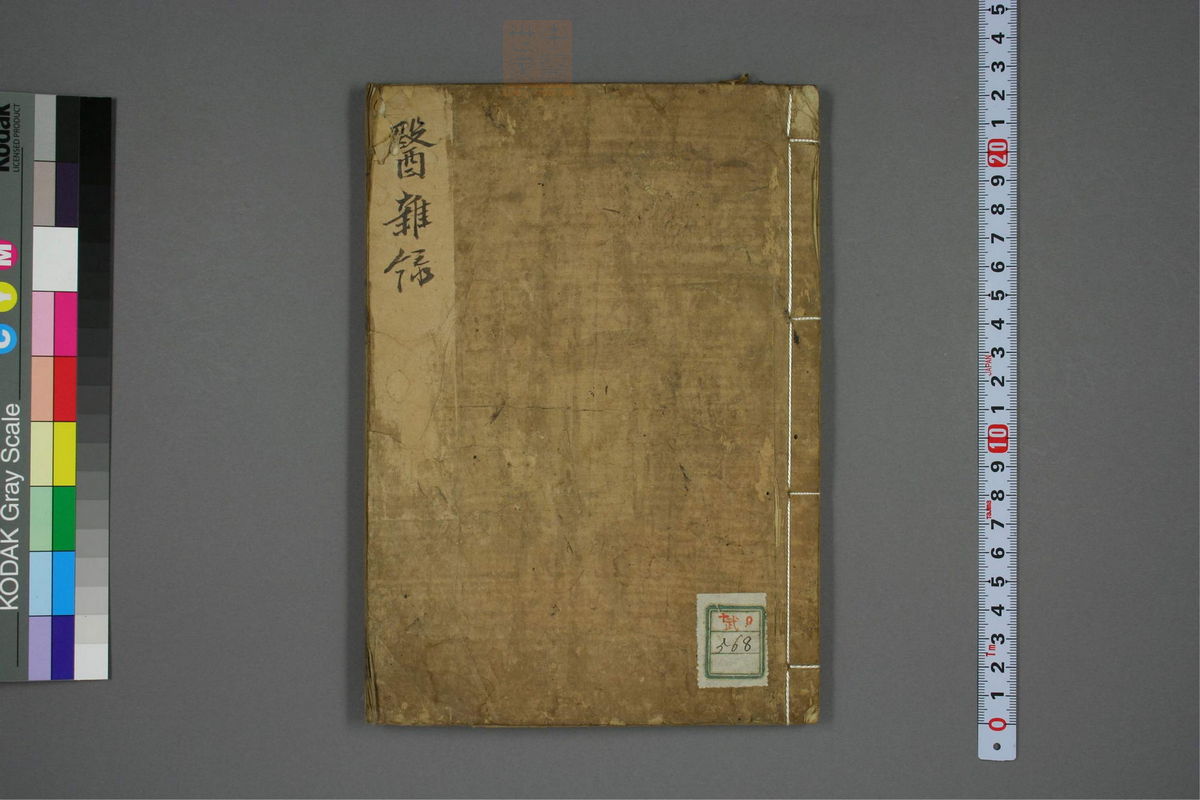 醫雜録
武
568
Kodak
LICENSED PRODUCT
KODAK Gray Scale
C Y M
5
4
3
2
1
20
9
8
7
6
5
4
3
JAPAN
2
1
10
9
8
7
6
5
4
3
2
1
0